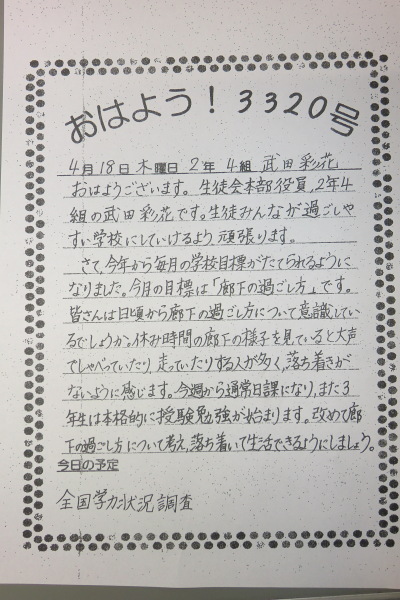 おはよう！3320号
4月18日木曜日 2年 4組 武田彩花
おはようございます。生徒会本部役員、2年4
組の武田彩花です。生徒みんなが過ごしや
すい学校にしていけるよう頑張ります。
さて、今年から毎月の学校目標がたてられるように
なりました。今月の目標は「廊下の過ごし方」です。
皆さんは日頃から廊下の過ごし方について意識してい
るでしょうか。休み時間の廊下の様子を見ていると大声
でしゃべっていたり、走っていたりする人が多く、落ち着きが
ないように感じます。今週から通常日課になり、また3
年生は本格的に受験勉強が始まります。改めて廊
下の過ごし方について考え、落ち着いて生活できるようにしましょう。
今日の予定
全国学力状況調査